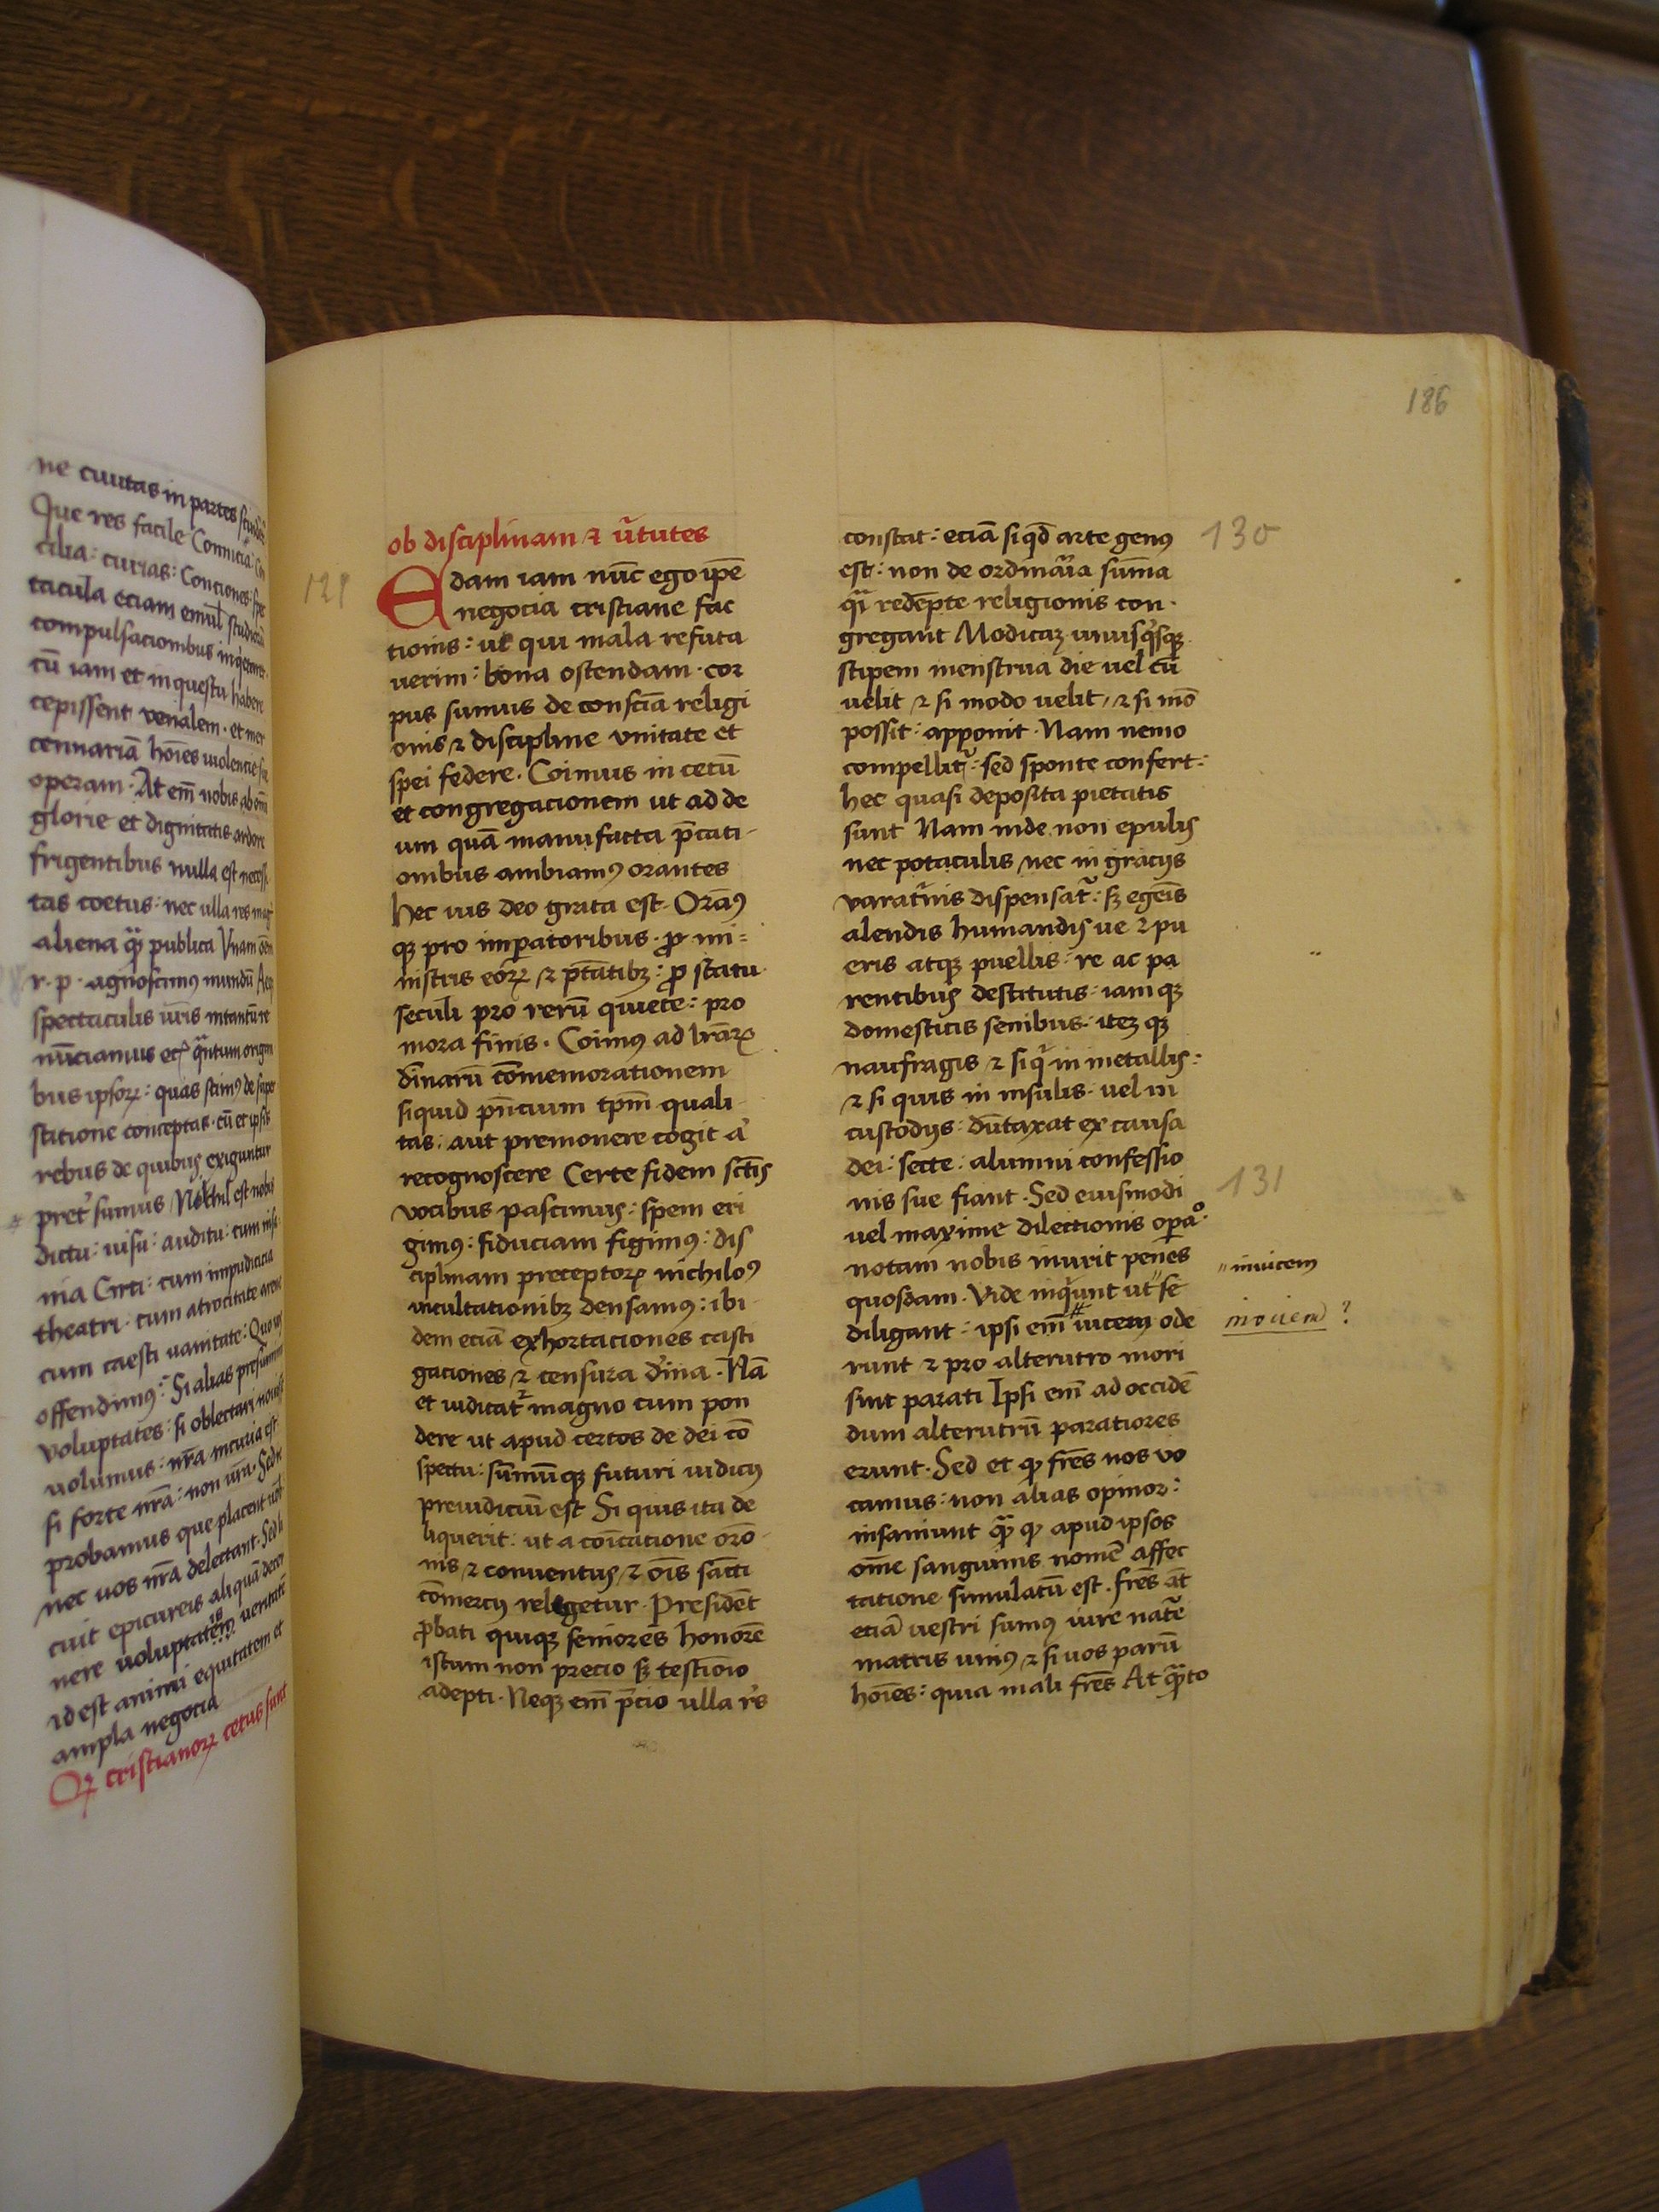 ne ciuitas in partes
Que res facile Comitia:
cilia: curias: Conciones: spe
tacula eciam emul
compulsacionibus inqetaret
cū iam et in questu habere
cepissent venalem. et mer
cennariā hoīes uiolencie
operam. At em̄ nobis ab om̄
glorie et dignitatis ardore
frigentibus nulla est necess
tas coetus: nec ulla res mag
aliena qͣ publica Vnam
r. p. agnoscimꝰ mundū
spectaculis uris intantū re
nūciamus
bus ipsoꝝ: quas scimꝰ de super
stitione conceptas. cū et ipsis
rebus de quibus exiguntur
pret' sumus Nichil est nobis
dictu: uisu: auditu: cum insa
nia Circi: cum impudicicia
theatri. cum atrocitate arene
cum caesti uanitate: Quo uos
offendimꝰ: Si alias presumim
voluptates: si oblectari nouisse
volumus: nr̄a iniuria est
si forte nr̄a: non ur̄a. Sed re
probamus que placent uob
nec uos nr̄a delectant. Sed li
cuit epicureis aliquā decer
nere voluptatem ueritatis
is
id est animi equitatem et
ampla negocia
Qꝙ cristianoꝝ cetus sunt
186
ob disciplinam ⁊ ũtutes
129
Edam iam nūc ego ip̄e
negocia cristiane fac
tionis: ut qui mala refuta
uerim: bona ostendam. cor
pus sumus de consciā religi
onis ⁊ discipline vnitate et
spei federe. Coimus in cetū
et congregacionem ut ad de
um quā manu facta p̄cati-
onibus ambiamꝰ orantes
hec uis deo grata est. Orāꝰ
qꝫ pro imperatoribus. ꝓ mi=
nistris eoꝝ ⁊ p̄tātibꝫ: ꝓ statu
seculi pro rerū quiete: pro
mora finis. Coimꝰ ad lr̄aꝝ
diuinarū cōmemorationem
siquid pn̄cium tpm̄ quali
tas: aut premonere cogit a'
recognoscere Certe fidem sctīs
vocibus pascimus: spem eri
gimꝰ: fiduciam figimꝰ: dis
ciplinam preceptoꝝ nichiloꝰ
incultationibꝫ densamꝰ: ibi
dem eciā exhortaciones casti
gaciones ⁊ censura diuina. Nā
et iudicat' magno cum pon
dere ut apud certos de dei cō
spectu: sūmūqꝫ futuri iudicij
preiudiciū est Si quis ita de
liquerit: ut a cōicatione orō
nis ⁊ conuentus ⁊ oīs sacti
cōmercij relegetur. Presidēt
ꝓbati quiqꝫ seniores honorē
istum non precio sꝫ testīoīo
adepti. Neqꝫ em̄ p̄cio ulla r's
constat: eciā si qd̄ arte genꝰ
130
est: non de ordinaria sūma
qͣ redēpte religionis con-
gregant Modicaꝫ unusqͥsqꝫ
stipem menstrua die uel cū
uelit ⁊ si modo uelit, ⁊ si mō
possit: apponit. Nam nemo
compellit': sed sponte confert:
hec quasi deposita pietatis
sunt Nam inde non epulis
nec potaculis nec in gracijs
varatrinis dispensat': sꝫ egeīs
alendis humandis ue ⁊ pu
eris atqꝫ puellis: re ac pa
rentibus destitutis: iam qꝫ
domesticis senibus: iteꝫ qꝫ
naufragis ⁊ si qͥ in metallis:
⁊ si quis in insulis: vel in
custodijs: dūtaxat ex causa
dei: secte: alumni confessio
nis sue fiant. Sed eiusmodi
131
vel maxime dilectionis opaͦ
notam nobis inurit penes
quosdam. Vide inqͥunt ut" se
" inuicem
diligant: ipsi em̄ iucem ode
inuicem ?
runt ⁊ pro alterutro mori
sint parati Ipsi em̄ ad occidē
dum alterutrū paratiores
erunt. Sed et ꝙ fr̄es nos vo
camus: non alias opinor:
insaniunt qͣ ꝙ apud ipsos
om̄e sanguinis nomē affec
tatione simulatū est. fr̄es at̄
eciā uestri sumꝰ iure natē
matris uniꝰ ⁊ si uos parū
hoīes: quia mali fr̄es At qͣnto